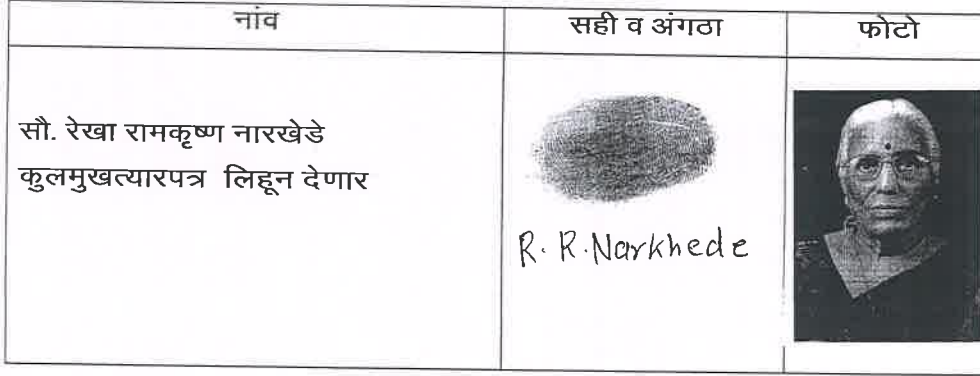 नांव सही व अंगठा फोटो
सौ. रेखा रामकृष्ण नारखेडे
कुलमुखत्यारपत्र लिहून देणार
R. R. Narkhede